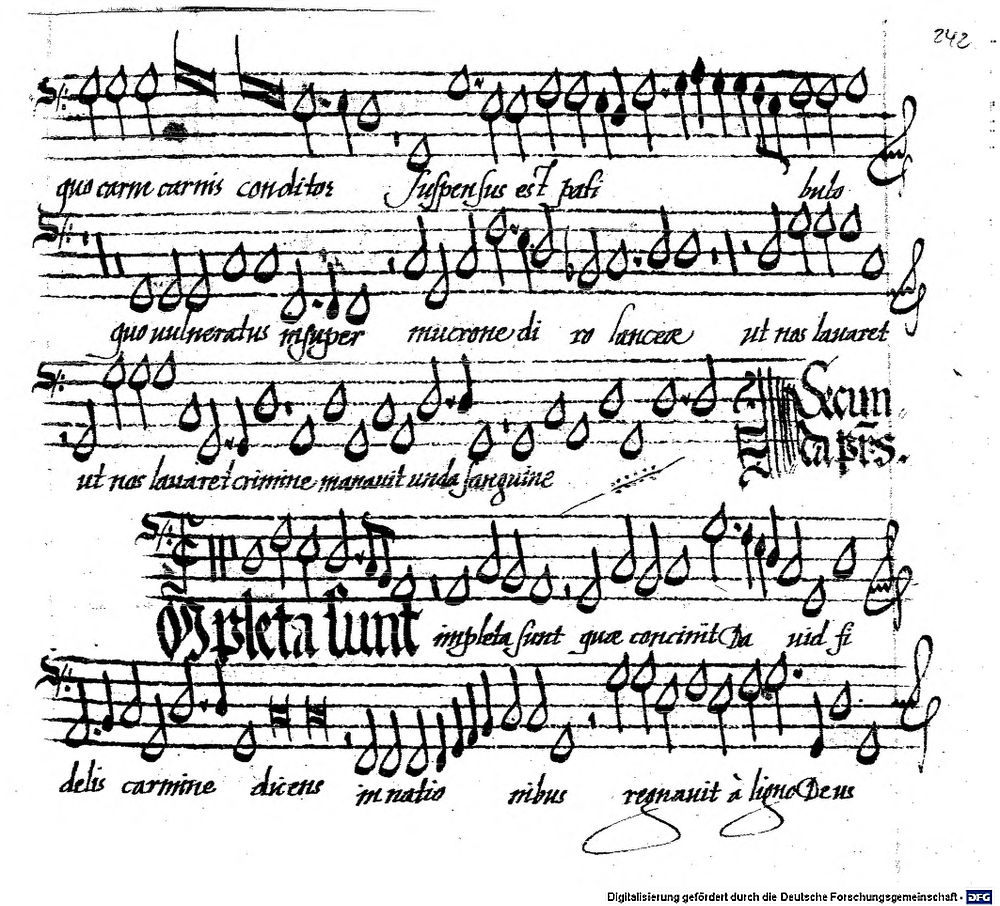 242
quo carne carnis conditor suspensus est pati bulo
quo vulneratus insuper mucrone di ro lanceæ ut nos lavaret
ut nos lavaret crimine manavit unda sanguine
Secun
da p̄rs.
Impleta sunt impleta sunt quæ concinit Da vid fi
delis carmine dicens in natio nibus regnavit à ligno Deus
Digitalisierung gefördert durch die Deutsche Forschungsgemeinschaft - DFG